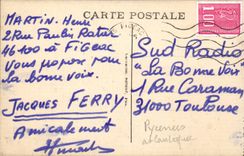 CARTE POSTALE
MARTIN. Henri
2 Rue Paulin Ratier
46100 à FIGEAC
Vous propose pour
La bonne voix.
JACQUES FERRY.
Amicalement
1.00
Sud Radio
"La Bonne Voix"
1 Rue Caraman
31000 Toulouse
Pyrenees
atlantiques